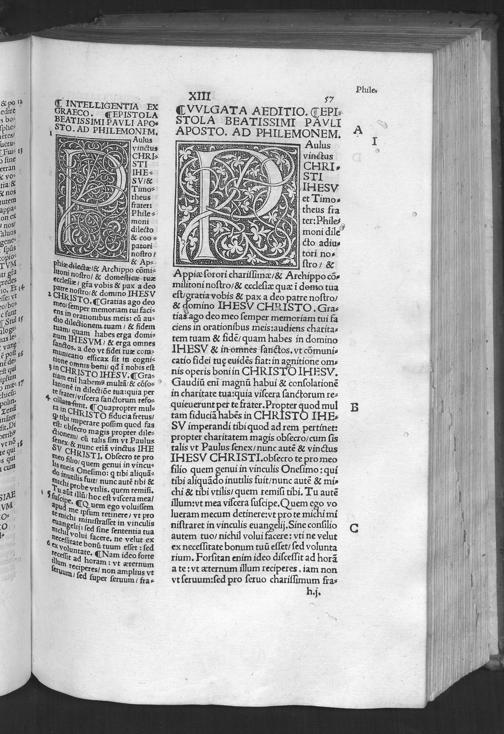 Phile.
XIII
57
¶ INTELLIGENTIA EX
GRAECO. ¶EPISTOLA
BEATISSIMI PAVLI APO-
STO. AD PHILEMONEM.
1
PAulus
vinctus
CHRI-
STI
IHE-
SV/&
Timo-
theus
frater:
Phile-
moni
dilecto
& coo-
patori
nostro/
& Ap-
phiæ dilectæ/& Archippo cōmi-
litoni nostro/& domesticæ tuæ
ecclesiæ/gřa vobis & pax a deo
patre nostro/& domino IHESV
2 CHRISTO. ¶Gratias ago deo
meo semper memoriam tui faci-
ens in orationibus meis: cū au-
dio dilectionem tuam/& fidem
tuam quam habes erga domi-
num IHESVM/& erga omnes
sanctos. a deo vt fidei tuæ com-
municatio efficax sit in cogni-
tione omnis boni qd̄ ī nobis est
3 in CHRISTO IHESV. ¶Gra-
tiam em̄ habemꝰ multā/& cōso-
lationē in dilectiōe tua: quia per
te frater/viscera sanctorum refo-
4 cillata sunt. ¶Quapropter mul-
ta in CHRISTO fiducia fretus
tibi imperare possim quod fas
est: obsecro magis propter dile-
ctionem/cū talis sim vt Paulus
senex/& nunc etiā vinctus IHE
SV CHRISTI. Obsecro te pro
meo filio/quem genui in vincu-
lis meis Onesimo: q̄ tibi aliquā-
do inutilis fuit/nunc autē tibi &
michi probe vtilis. quem remisi.
Tu aūt illū/hoc est viscera mea/
5 suscipe. ¶Quem ego voluissem
apud me ipsum retinere/vt pro
te michi ministrasset in vinculis
euangelij: sed sine sententia tua
nichil volui facere. ne velut ex
necessitate bonū tuum esset: sed
6 ex voluntate. ¶Nam ideo forte
recessit ad horam: vt æternum
illum reciperes/non amplius vt
seruum/sed super seruum/fra-
¶VVLGATA AEDITIO. ¶EPI-
STOLA BEATISSIMI PAVLI
APOSTO. AD PHILEMONEM.
A
I
PAulus
vinctus
CHRI-
STI
IHESV
et Timo-
theus fra
ter: Phile-
moni dile
cto adiu-
tori no-
stro/&
Appiæ sorori charissimæ/& Archippo cō-
militoni nostro/& ecclesiæ quæ ī domo tua
est/gratia vobis & pax a deo patre nostro/
& domino IHESV CHRISTO. Gra-
tias ago deo meo semper memoriam tui fa
ciens in orationibus meis: audiens charita-
tem tuam & fidē/quam habes in domino
IHESV & in omnes sanctos. vt cōmuni-
catio fidei tuę euidēs fiat: in agnitione om-
nis operis boni in CHRISTO IHESV.
Gaudiū em̄ magnū habui & consolationē
in charitate tua: quia viscera sanctorum re-
quieuerunt per te frater. Propter quod mul
B
tam fiduciā habēs in CHRISTO IHE-
SV imperandi tibi quod ad rem pertinet:
propter charitatem magis obsecro/cum sis
talis vt Paulus senex/nunc autē & vinctus
IHESV CHRISTI. obsecro te pro meo
filio quem genui in vinculis Onesimo: qui
tibi aliquādo inutilis fuit/nunc autē & mi-
chi & tibi vtilis/quem remisi tibi. Tu autē
illum: vt mea viscera suscipe. Quem ego vo
lueram mecum detinere vt pro te michi mi
nistraret in vinculis euangelij. Sine consilio
C
autem tuo/nichil volui facere: vti ne velut
ex necessitate bonum tuū esset/sed volunta
rium. Forsitan enim ideo discessit ad horā
a te: vt æternum illum reciperes. iam non
vt seruum: sed pro seruo charissimum fra-
h.j.